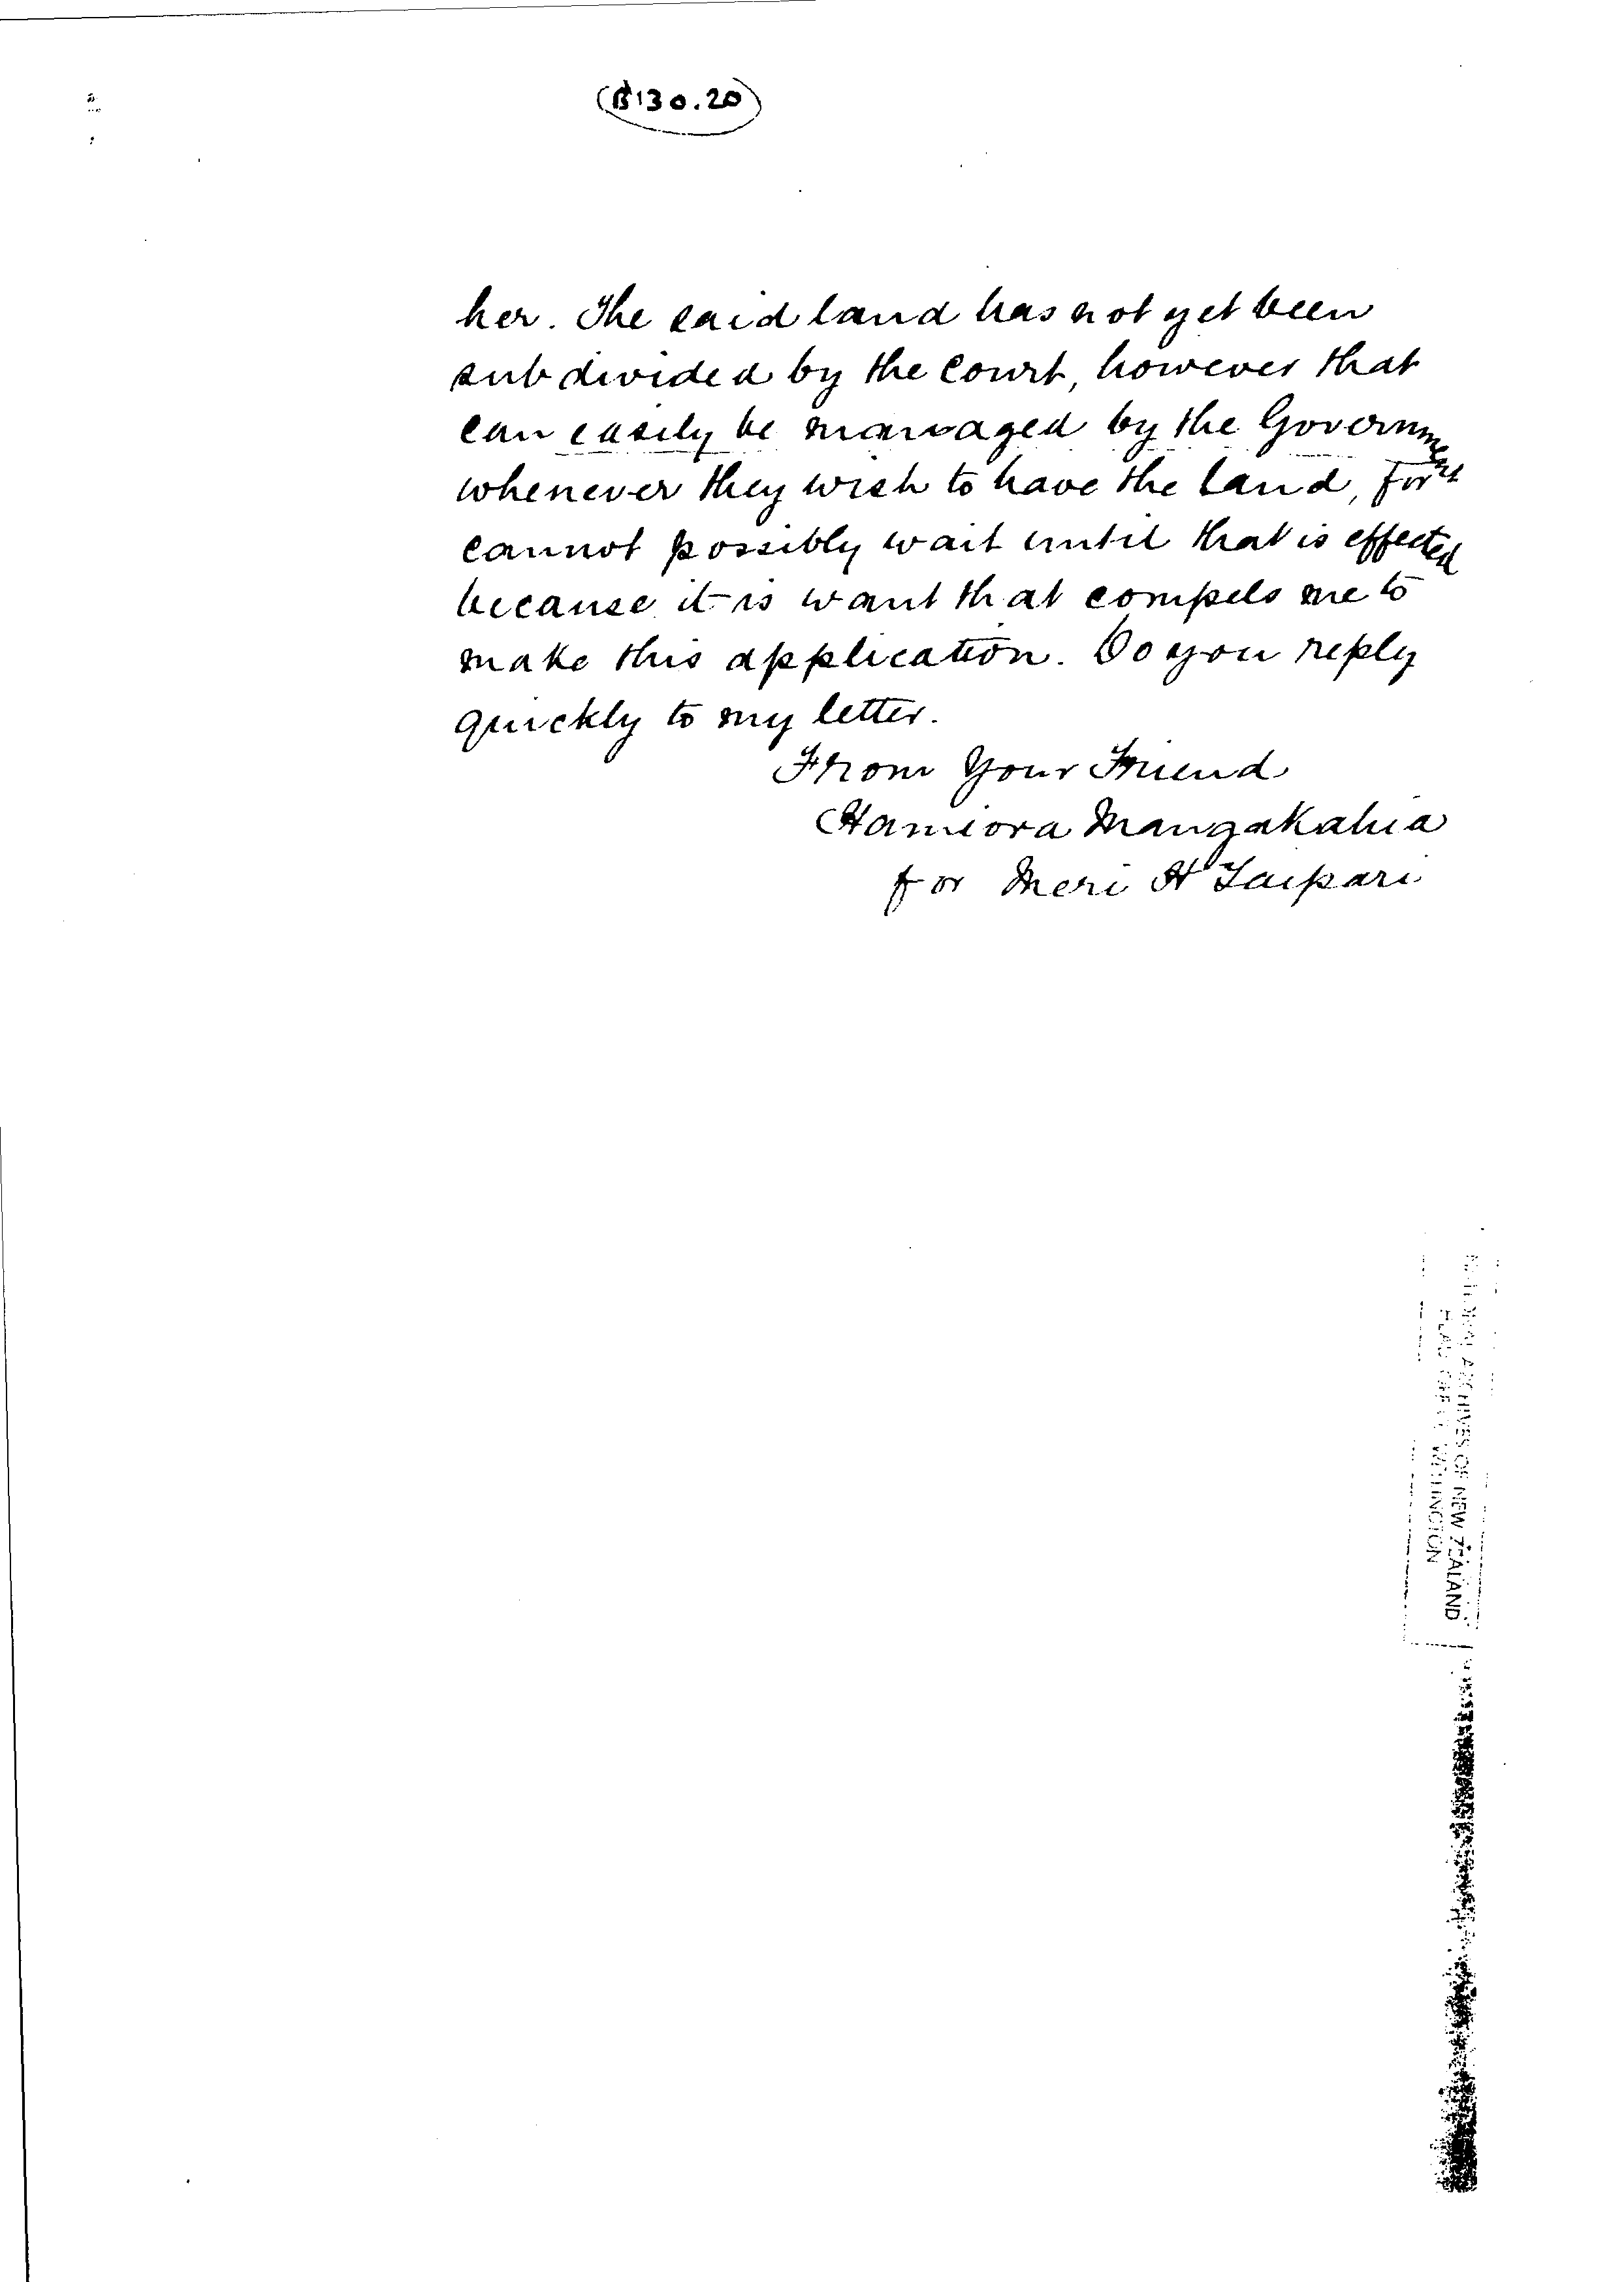 (B130.20)
her. The said land has not yet been
subdivided by the Court, however that
can easily be managed by the Government
whenever they wish to have the land, for
cannot possibly wait until that is effected
because it is want that compels me to
make this application. Do you reply
quickly to my letter.
From Your Friend
Hamiora Mangakahia
for Meri H Taipari
ARCHIVES OF NEW ZEALAND
WELLINGTON